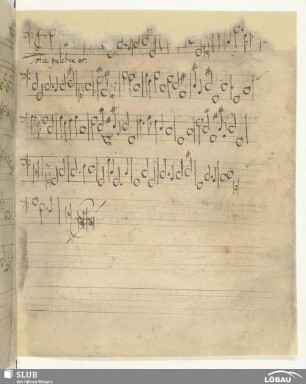 Tota pulchra es.
SLUB
Wir führen Wissen.
LÖBAU